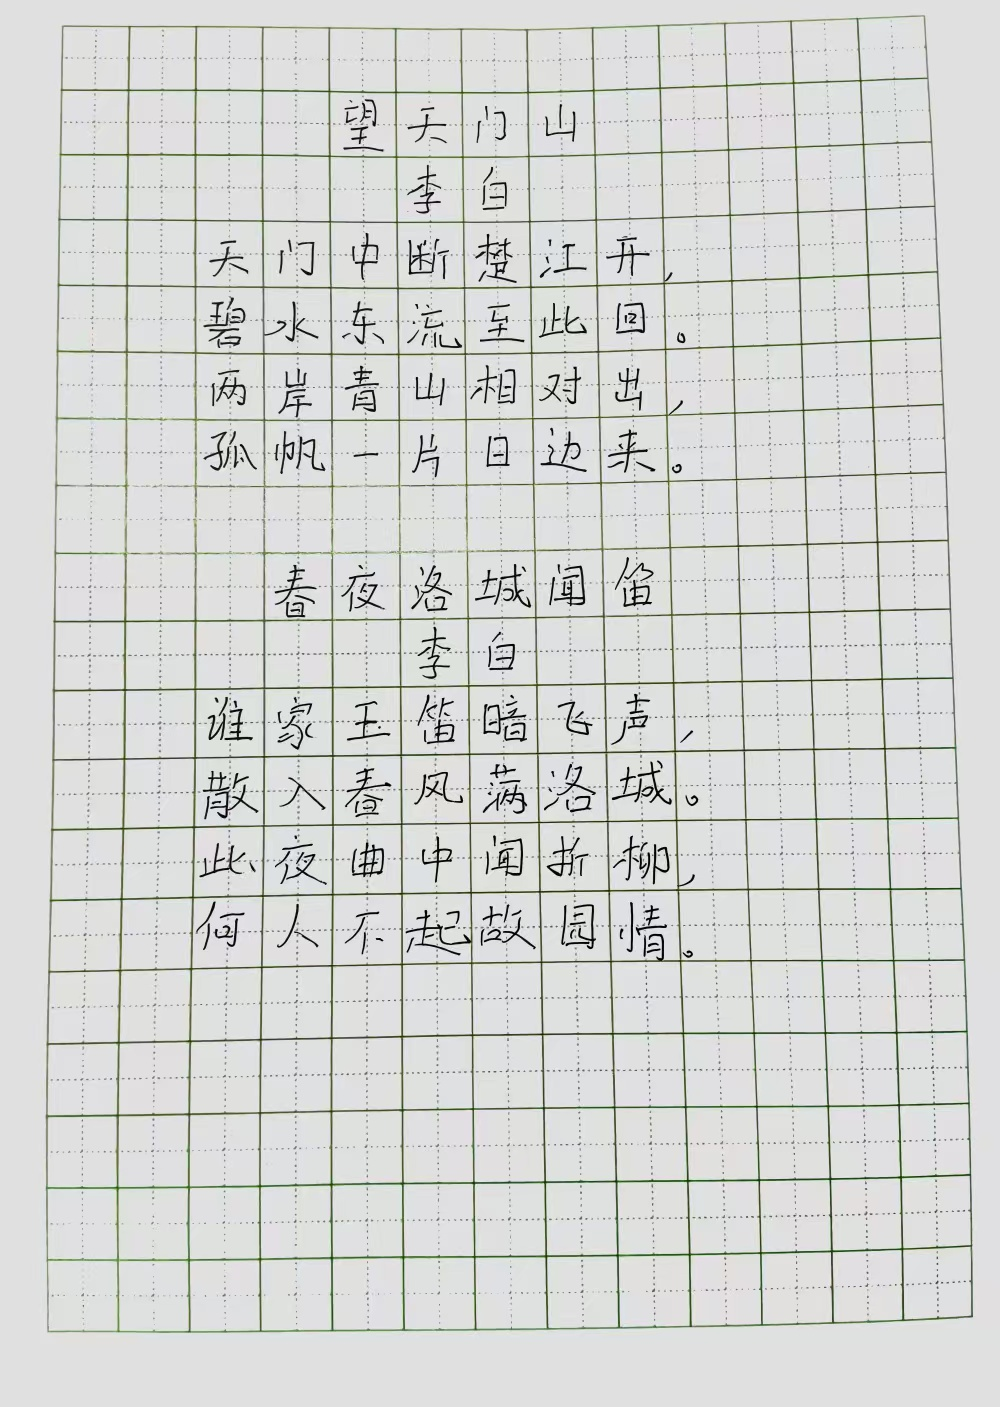 望天门山
李白
天门中断楚江开，
碧水东流至此回。
两岸青山相对出，
孤帆一片日边来。
春夜洛城闻笛
李白
谁家玉笛暗飞声，
散入春风满洛城。
此夜曲中闻折柳，
何人不起故园情。